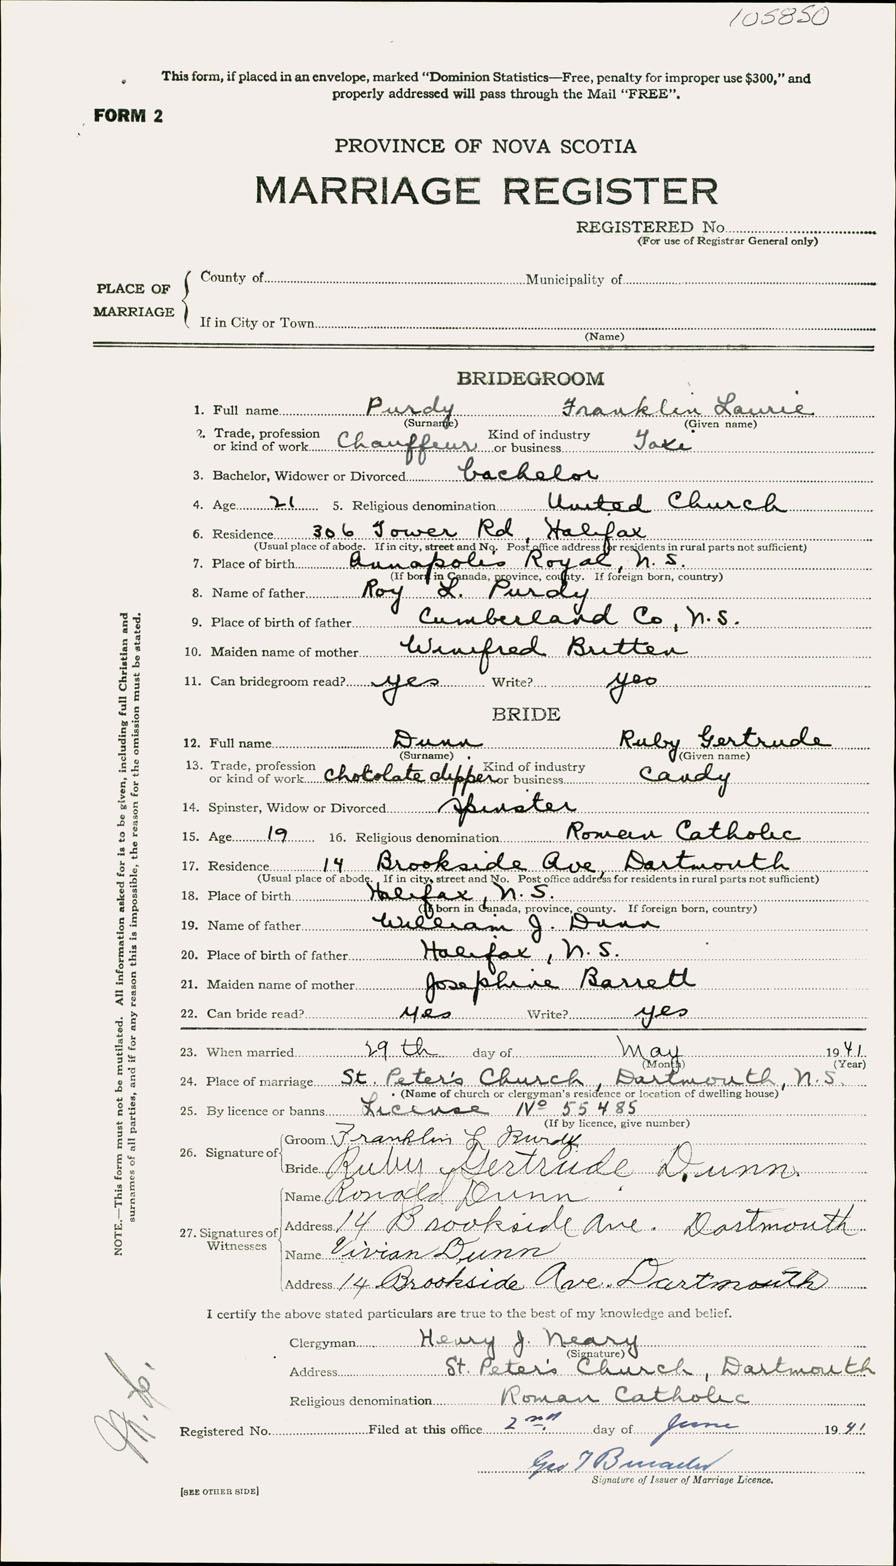 105850
This form, if placed in an envelope, marked "Dominion Statistics—Free, penalty for improper use $300," and
properly addressed will pass through the Mail "FREE".
FORM 2
PROVINCE OF NOVA SCOTIA
MARRIAGE REGISTER
REGISTERED No.
(For use of Registrar General only)
PLACE OF MARRIAGE
County of Municipality of
If in City or Town
(Name)
BRIDEGROOM
1. Full name Purdy Franklin Laurie
(Surname) (Given name)
2. Trade, profession or kind of work Chauffeur Kind of industry or business Taxi
3. Bachelor, Widower or Divorced bachelor
4. Age 21 5. Religious denomination United Church
6. Residence 306 Tower Rd, Halifax
(Usual place of abode. If in city, street and No. Post office address for residents in rural parts not sufficient)
7. Place of birth Annapolis Royal, N.S.
(If born in Canada, province, county. If foreign born, country)
8. Name of father Roy L. Purdy
9. Place of birth of father Cumberland Co, N.S.
10. Maiden name of mother Winifred Britten
11. Can bridegroom read? yes Write? yes
BRIDE
12. Full name Dunn Ruby Gertrude
(Surname) (Given name)
13. Trade, profession or kind of work chocolate dipper Kind of industry or business candy
14. Spinster, Widow or Divorced spinster
15. Age 19 16. Religious denomination Roman Catholic
17. Residence 14 Brookside Ave, Dartmouth
(Usual place of abode. If in city, street and No. Post office address for residents in rural parts not sufficient)
18. Place of birth Halifax, N.S.
(If born in Canada, province, county. If foreign born, country)
19. Name of father William J. Dunn
20. Place of birth of father Halifax, N.S.
21. Maiden name of mother Josephine Barrett
22. Can bride read? yes Write? yes
23. When married 29th day of May 1941
(Month) (Year)
24. Place of marriage St. Peter's Church, Dartmouth, N.S.
(Name of church or clergyman's residence or location of dwelling house)
25. By licence or banns License No 55485
(If by licence, give number)
26. Signature of
Groom Franklin L Purdy
Bride Ruby Gertrude Dunn.
27. Signatures of Witnesses
Name Ronald Dunn
Address 14 Brookside Ave. Dartmouth
Name Vivian Dunn
Address 14 Brookside Ave. Dartmouth
I certify the above stated particulars are true to the best of my knowledge and belief.
Clergyman Henry J. Neary
(Signature)
Address St. Peter's Church, Dartmouth
Religious denomination Roman Catholic
Registered No. Filed at this office 2nd. day of June 1941
Geo T
Signature of Issuer of Marriage Licence.
[SEE OTHER SIDE]
NOTE.—This form must not be mutilated. All information asked for is to be given, including full Christian and
surnames of all parties, and if for any reason this is impossible, the reason for the omission must be stated.